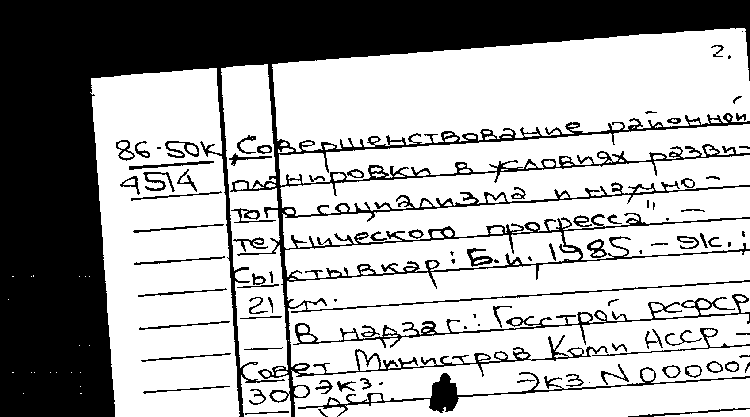 2.
86-50К „Совершенствование районной
4514 планировки в условиях разви-
того социализма и научно-
технического прогресса". -
Сыктывкар: Б.и., 1985. - 9л.;
21 см.
В надзаг.: Госстрой РСФСР,
Совет Министров Коми АССР. -
300 экз.
ДСП. Экз. N 000007